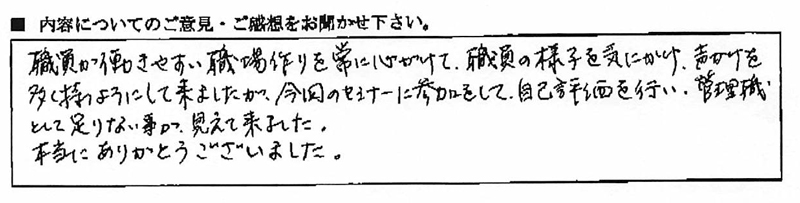 ■ 内容についてのご意見・ご感想をお聞かせ下さい。
職員が働きやすい職場作りを常に心がけて、職員の様子を気にかけ、声かけを
多く持つようにして来ましたが、今回のセミナーに参加をして、自己評価を行い、管理職
として足りない事が、見えて来ました。
本当にありがとうございました。